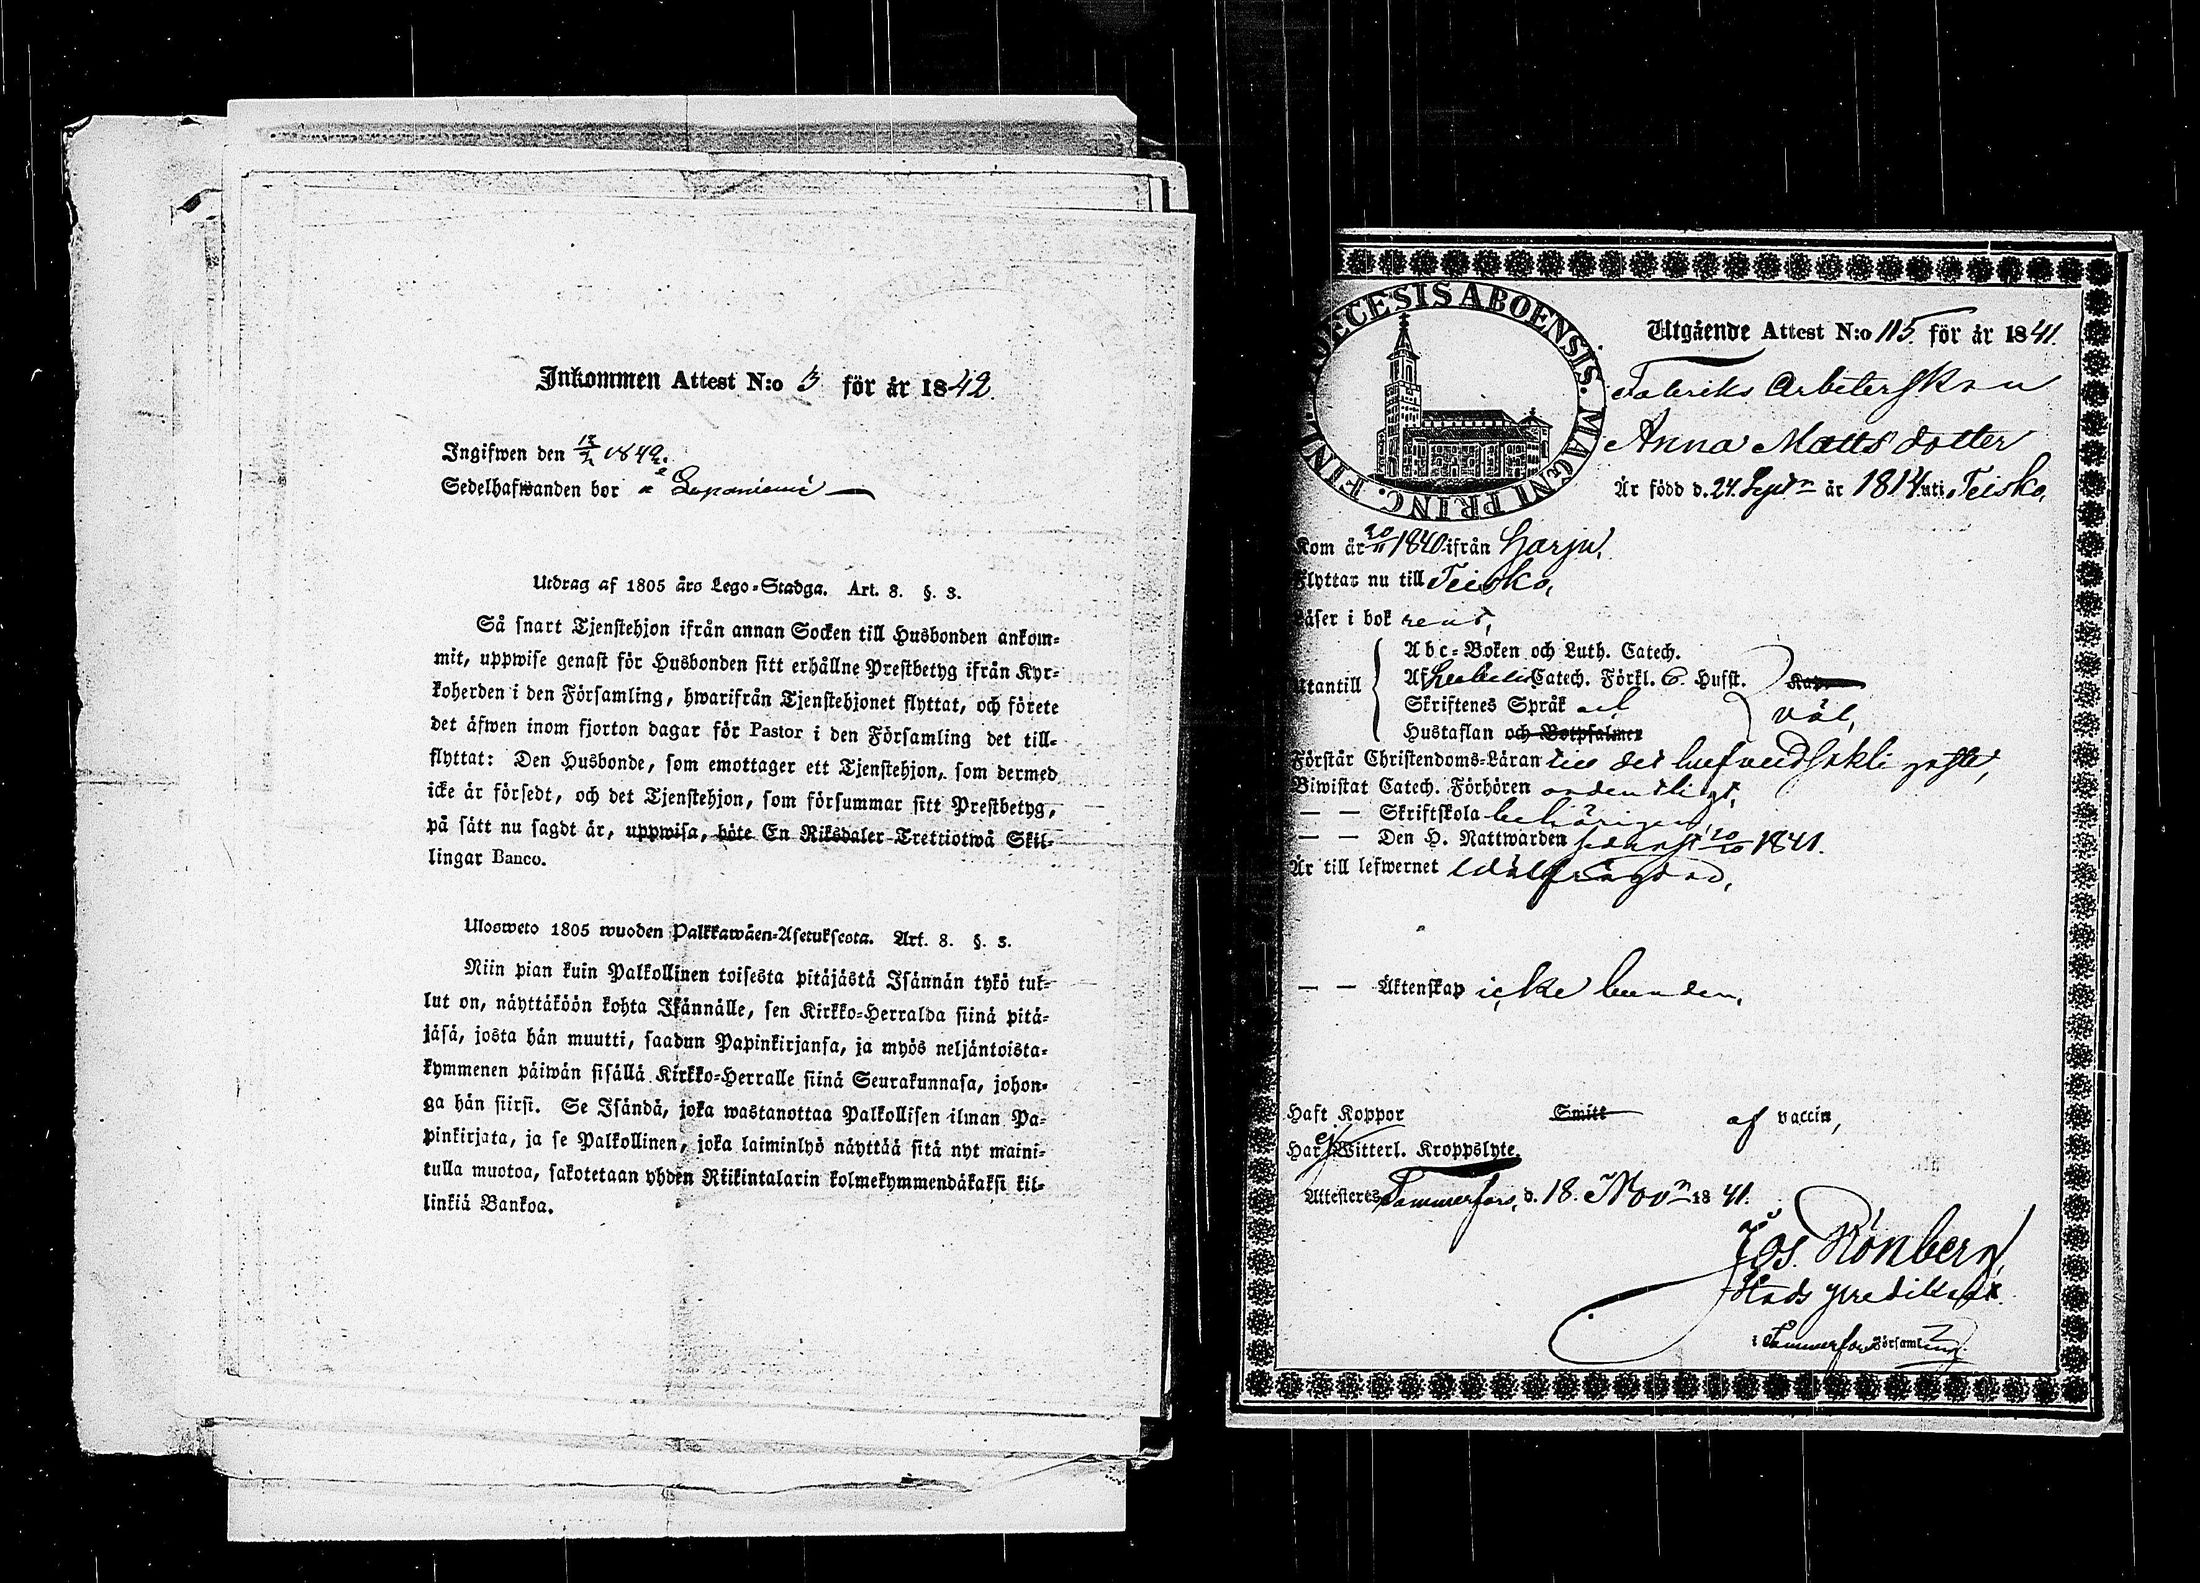 Inkommen Attest N:o 3 för år 1842.
Ingifwen den 13/2 1842.
Sedelhafwanden bor å
Utdrag af 1805 års Lego-Stadga. Art. 8. §. 3.
Så snart Tjenstehjon ifrån annan Socken till Husbonden ankom-
mit, uppwise genast för Husbonden sitt erhållne Prestbetyg ifrån Kyr-
koherden i den Församling, hwarifrån Tjenstehjonet flyttat, och förete
det äfwen inom fjorton dagar för Pastor i den Församling det till-
flyttat: Den Husbonde, som emottager ett Tjenstehjon, som dermed
icke är försedt, och det Tjenstehjon, som försummar sitt Prestbetyg,
på sätt nu sagdt är, uppwisa, böte En Riksdaler Trettiotwå Skil-
lingar Banco.
Ulosweto 1805 wuoden Palkkawäen-Asetuksesta. Art. 8. §. 3.
Niin pian kuin Palkollinen toisesta pitäjästä Isännän tykö tul-
lut on, näyttäköön kohta Isännälle, sen Kirkko-Herralda siinä pitä-
jäsä, josta hän muutti, saadun Papinkirjansa, ja myös neljäntoista-
kymmenen päiwän sisällä Kirkko-Herralle siinä Seurakunnasa, johon-
ga hän siirsi. Se Isändä, joka wastanottaa Palkollisen ilman Pa-
pinkirjata, ja se Palkollinen, joka laiminlyö näyttää sitä nyt maini-
tulla muotoa, sakotetaan yhden Riikintalarin kolmekymmendäkaksi kil-
linkiä Bankoa.
DIOECESIS ABOENSIS. MAGNI PRINC. FINL.
Utgående Attest N:o 115 för år 1841.
Fabriks Arbeterskan
Anna Matts dotter
Är född d. 24. Septr år 1814 uti Teisko,
Kom år 20/11 1840 ifrån Harju,
Flyttar nu till Teisko,
Läser i bok rent,
Utantill
Abc-Boken och Luth. Catech.
Af Catech. Förkl. 6. Hufst.
Skriftenes Språk
Hustaflan och Botpsalmer
väl,
Förstår Christendoms-Läran till det
Biwistat Catech. Förhören ordentligt,
— — Skriftskola behörigen,
— — Den H. Nattwarden sednast 20/10 1841.
Är till lefwernet wälfrägdad,
— — Äktenskap icke bunden,
Haft Koppor Smitt af vaccin,
Har ej Witterl. Kroppslyte.
Attesteres Tammerfors, d. 18. Novr 1841.
Jos. Rönberg,
Stads predikant.
i Tammerfors Församling.